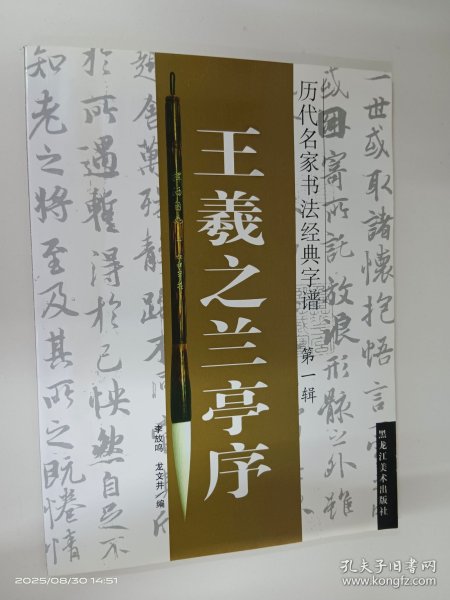 一世或取諸懷抱悟言
或因寄所託放浪形骸之外雖
历代名家书法经典字谱 第一辑
黑龙江美术出版社
王羲之兰亭序
李放鸣 龙文井/编
趣舍萬殊靜躁不同
於所遇暫得於己怏然自足不
知老之將至及其所之既惓情
2025/08/30 14:51
孔夫子旧书网
www.kongfz.com